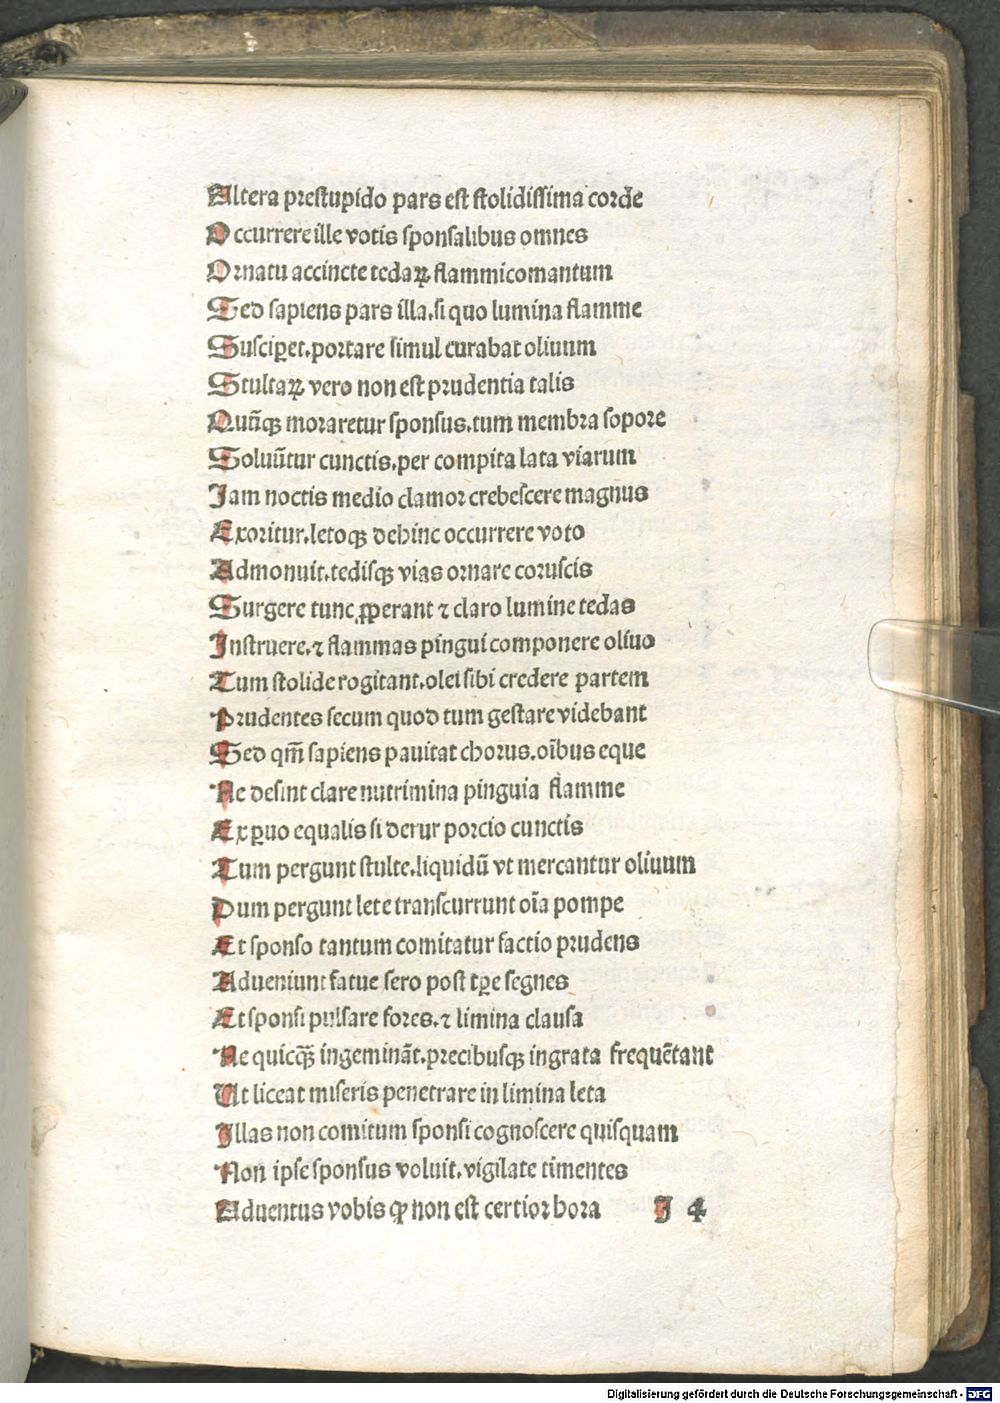 Altera prestupido pars est stolidissima corde
Occurrere ille votis sponsalibus omnes
Ornatu accincte tedaꝝ flammicomantum
Sed sapiens pars illa.si quo lumina flamme
Susciꝑet.portare simul curabat oliuum
Stultaꝝ vero non est prudentia talis
Qun̄qꝫ moraretur sponsus.tum membra sopore
Soluūtur cunctis.per compita lata viarum
Jam noctis medio clamor crebescere magnus
Exoritur.letoqꝫ dehinc occurrere voto
Admonuit.tedisqꝫ vias ornare coruscis
Surgere tunc ꝓperant ⁊ claro lumine tedas
Instruere.⁊ flammas pingui componere oliuo
Tum stolide rogitant.olei sibi credere partem
Prudentes secum quod tum gestare videbant
Sed qm̄ sapiens pauitat chorus.oībus eque
Ne desint clare nutrimina pinguia flamme
Ex ꝑuo equalis si detur porcio cunctis
Tum pergunt stulte.liquidū vt mercantur oliuum
Dum pergunt lete transcurrunt oīa pompe
Et sponso tantum comitatur factio prudens
Adueniunt fatue sero post tꝑe segnes
Et sponsi pulsare fores.⁊ limina clausa
Ne quicqꝫ̄ ingemināt.precibusqꝫ ingrata frequētant
Ut liceat miseris penetrare in limina leta
Illas non comitum sponsi cognoscere quisquam
Non ipse sponsus voluit.vigilate timentes
Aduentus vobis ꝙ non est certior hora J 4
Digitalisierung gefördert durch die Deutsche Forschungsgemeinschaft - DFG